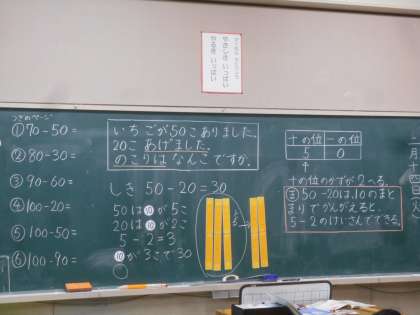 やさしさ いっぱい
やるき いっぱい
つぎのページ
①70-50=
②80-30=
③90-60=
④100-20=
⑤100-50=
⑥100-90=
いちごが50こありました.
20こ あげました.
のこりは なんこですか.
しき 50-20=30
50は⑩が5こ
20は⑩が2こ
5-2=3
⑩が3こで30
十の位 一の位
5 0
4
十の位のかずが2へる.
ま 50-20は,10のまと
まりでかんがえると,
5-2のけいさんでできる.